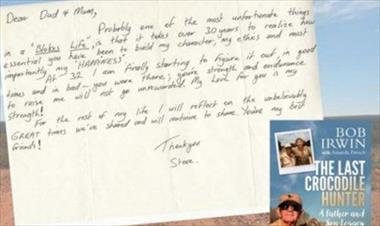 Dear Dad & Mum,
Probably one of the most unfortunate things
in a "Blokes Life", is that it takes over 30 years to realize how
essential you have been to build my character, my ethics and most
importantly my "HAPPINESS".
At 32, I am finally starting to figure it out, in good
times and in bad - you were there, your strength and endurance
to raise me will not go unrewarded. My love for you is my
strength!
For the rest of my life I will reflect on the unbelievably
GREAT times we've shared and will continue to share. You're my best
friends!
Thankyou
Steve.
BOB
IRWIN
with Amanda French
THE LAST
CROCODILE
HUNTER
A Father and
Son Legacy